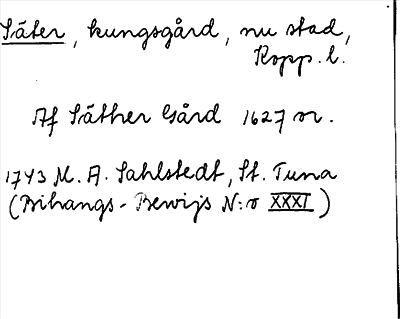 Säter, kungsgård, nu stad,
Kopp. l.
Af Säther Gård 1627 or.
1743 M. A. Sahlstedt, St. Tuna
(Bihangs-Bewijs N:o XXXI)